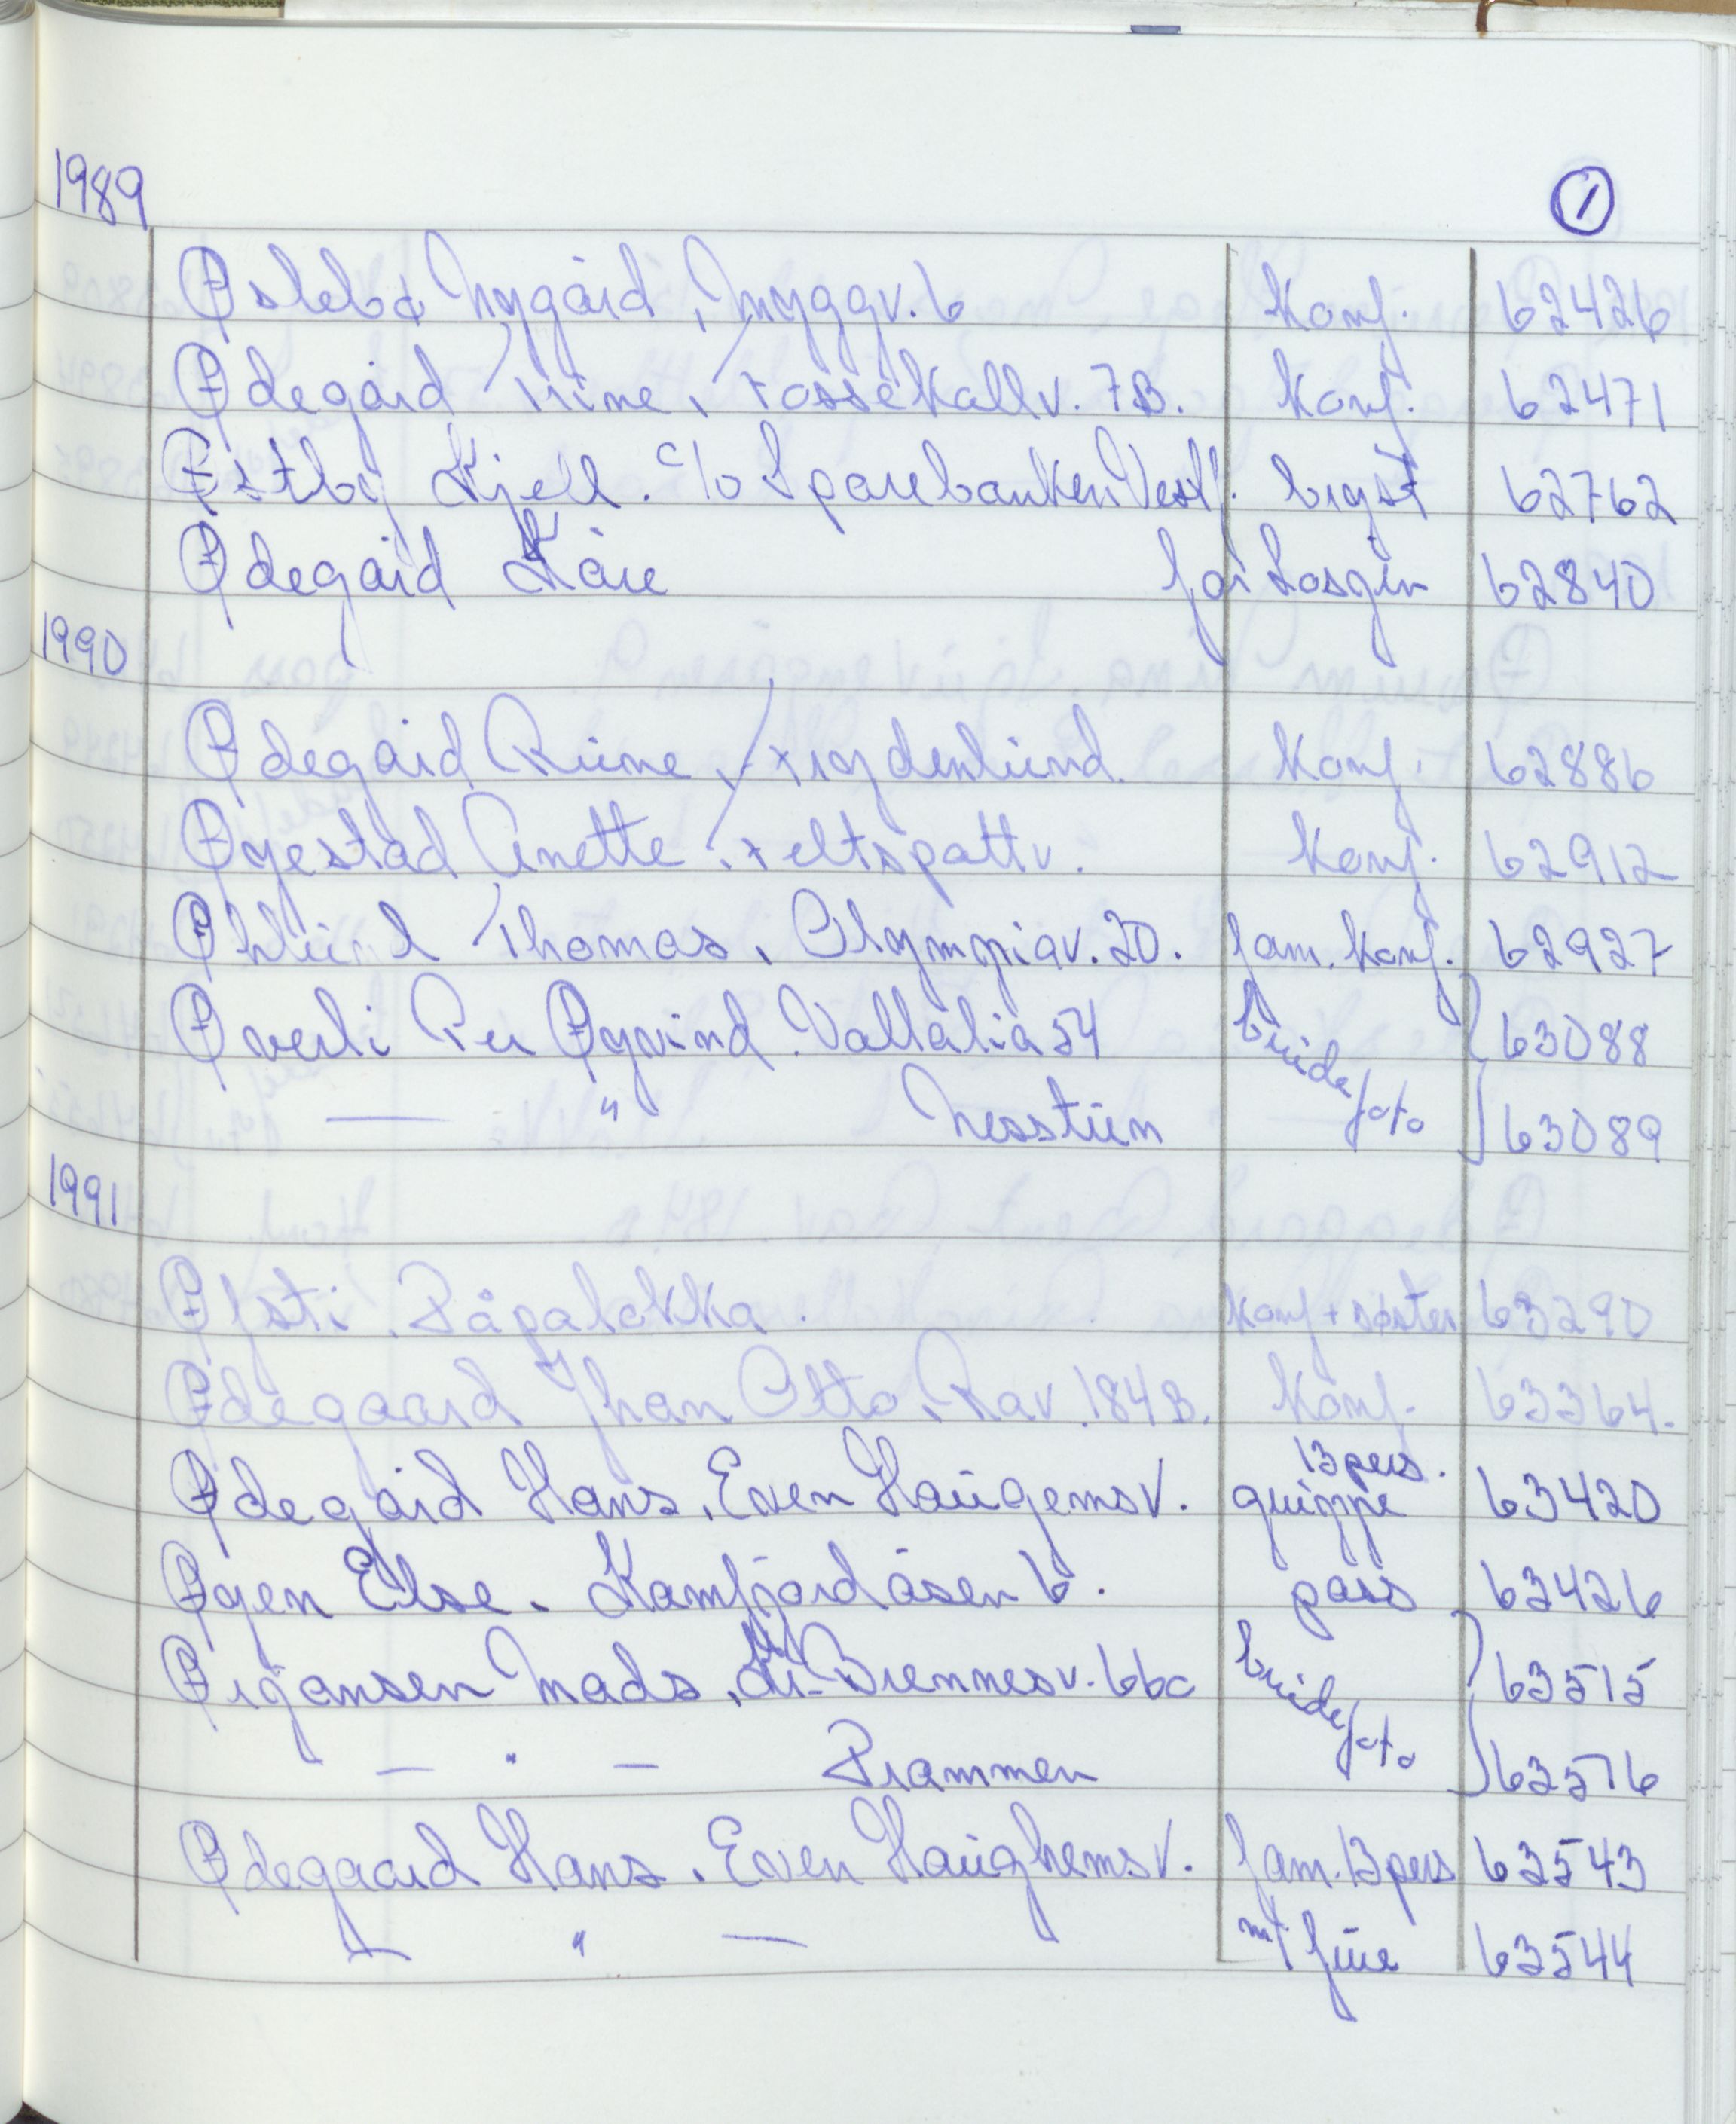 1989
①
Øslebø Nygård, Myggv. 6 Konf. 62426
Ødegård Trine, Fossekallv. 7B. Konf. 62471
Østby Kjell. c/o Sparebanken Vestf. bryst 62762
Ødegård Kåre for Losgin 62840
1990
Ødegård Rune, Frydenlund. Konf. 62886
Øyestad Anette. Feltspattv. Konf. 62912
Øhlund Thomas, Olympiav. 20. fam. Konf. 62927
Øverli Per Øyvind. Vallølia 54 brude 63088
— " Nesstun foto 63089
1991
Øfsti. Råpaløkka. Konf + søster 63290
Ødegaard Jhan Otto, Rav. 184B. Konf. 63364.
13 pers.
Ødegård Hans, Even Haugemsv. gruppe 63420
Øyen Else. Kamfjordåsen 6. pass 63426
Ørjansen Mads, N. Brennesv. 66c brude 63515
— " — Prammen foto 63516
Ødegaard Hans. Even Haughemsv. fam. 13 pers 63543
— " — m/ frue 63544